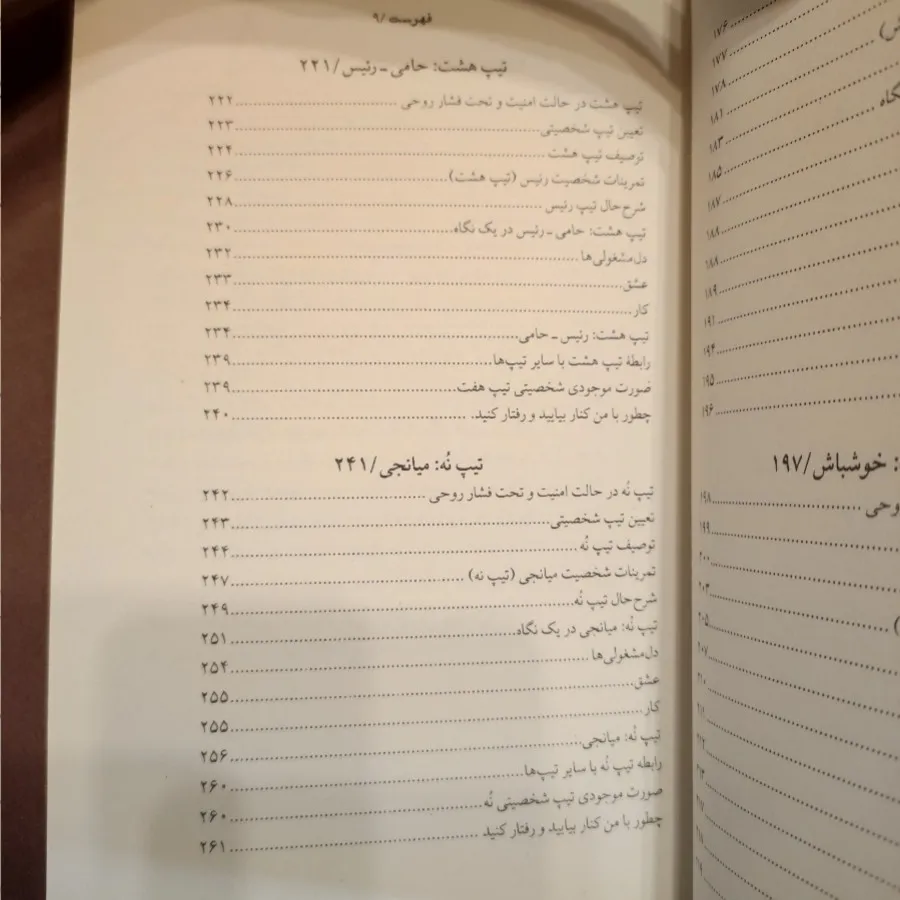 فهرست /۹
تیپ هشت: حامی ـ رئیس /۲۲۱
تیپ هشت در حالت امنیت و تحت فشار روحی ............ ۲۲۲
تعیین تیپ شخصیتی ............ ۲۲۳
توصیف تیپ هشت ............ ۲۲۴
تمرینات شخصیت رئیس (تیپ هشت) ............ ۲۲۶
شرح‌حال تیپ رئیس ............ ۲۲۸
تیپ هشت: حامی ـ رئیس در یک نگاه ............ ۲۳۰
دل‌مشغولی‌ها ............ ۲۳۲
عشق ............ ۲۳۳
کار ............ ۲۳۴
تیپ هشت: رئیس ـ حامی ............ ۲۳۴
رابطهٔ تیپ هشت با سایر تیپ‌ها ............ ۲۳۹
صورت موجودی شخصیتی تیپ هفت ............ ۲۳۹
چطور با من کنار بیایید و رفتار کنید. ............ ۲۴۰
تیپ نُه: میانجی /۲۴۱
تیپ نُه در حالت امنیت و تحت فشار روحی ............ ۲۴۲
تعیین تیپ شخصیتی ............ ۲۴۳
توصیف تیپ نُه ............ ۲۴۴
تمرینات شخصیت میانجی (تیپ نه) ............ ۲۴۷
شرح‌حال تیپ نُه ............ ۲۴۹
تیپ نُه: میانجی در یک نگاه ............ ۲۵۱
دل‌مشغولی‌ها ............ ۲۵۴
عشق ............ ۲۵۵
کار ............ ۲۵۵
تیپ نُه: میانجی ............ ۲۵۶
رابطه تیپ نُه با سایر تیپ‌ها ............ ۲۶۰
صورت موجودی تیپ شخصیتی نُه ............ ۲۶۰
چطور با من کنار بیایید و رفتار کنید ............ ۲۶۱
۱۷۶
۱۷۷
۱۷۸
۱۸۱
۱۸۳
۱۸۵
۱۸۷
۱۸۸
۱۸۸
۱۸۹
۱۹۱
۱۹۴
۱۹۵
۱۹۶
: خوشباش /۱۹۷
وحی ............ ۱۹۸
۱۹۹
۲۰۰
۲۰۳
۲۰۵
۲۰۷
۲۱۰
۲۱۲